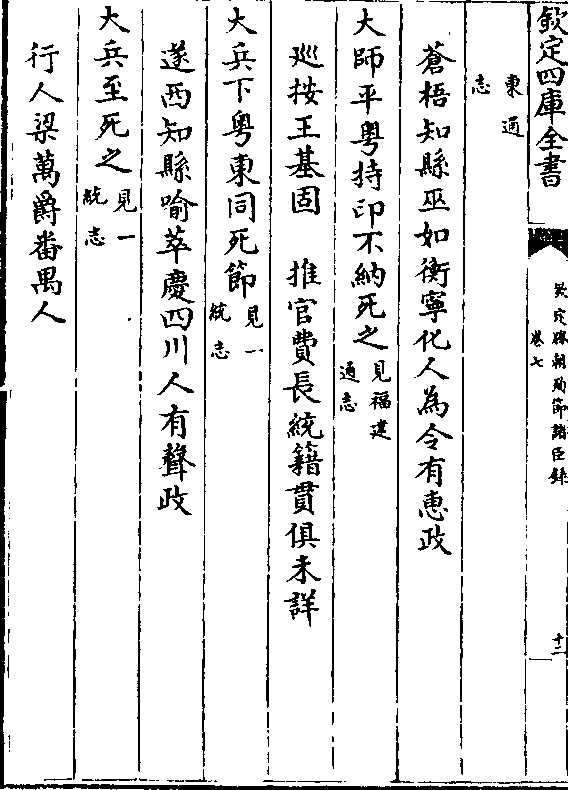 欽定四庫全書
欽定勝朝殉節諸臣錄
卷七
十二
東通
志
蒼梧知縣巫如衡寧化人為令有惠政
大師平粤持印不納死之見福建
通志
巡按王基固　推官費長統籍貫俱未詳
大兵下粤東同死節見一
統志
遂西知縣喻萃慶四川人有聲政
大兵至死之見一
統志
行人梁萬爵番禺人